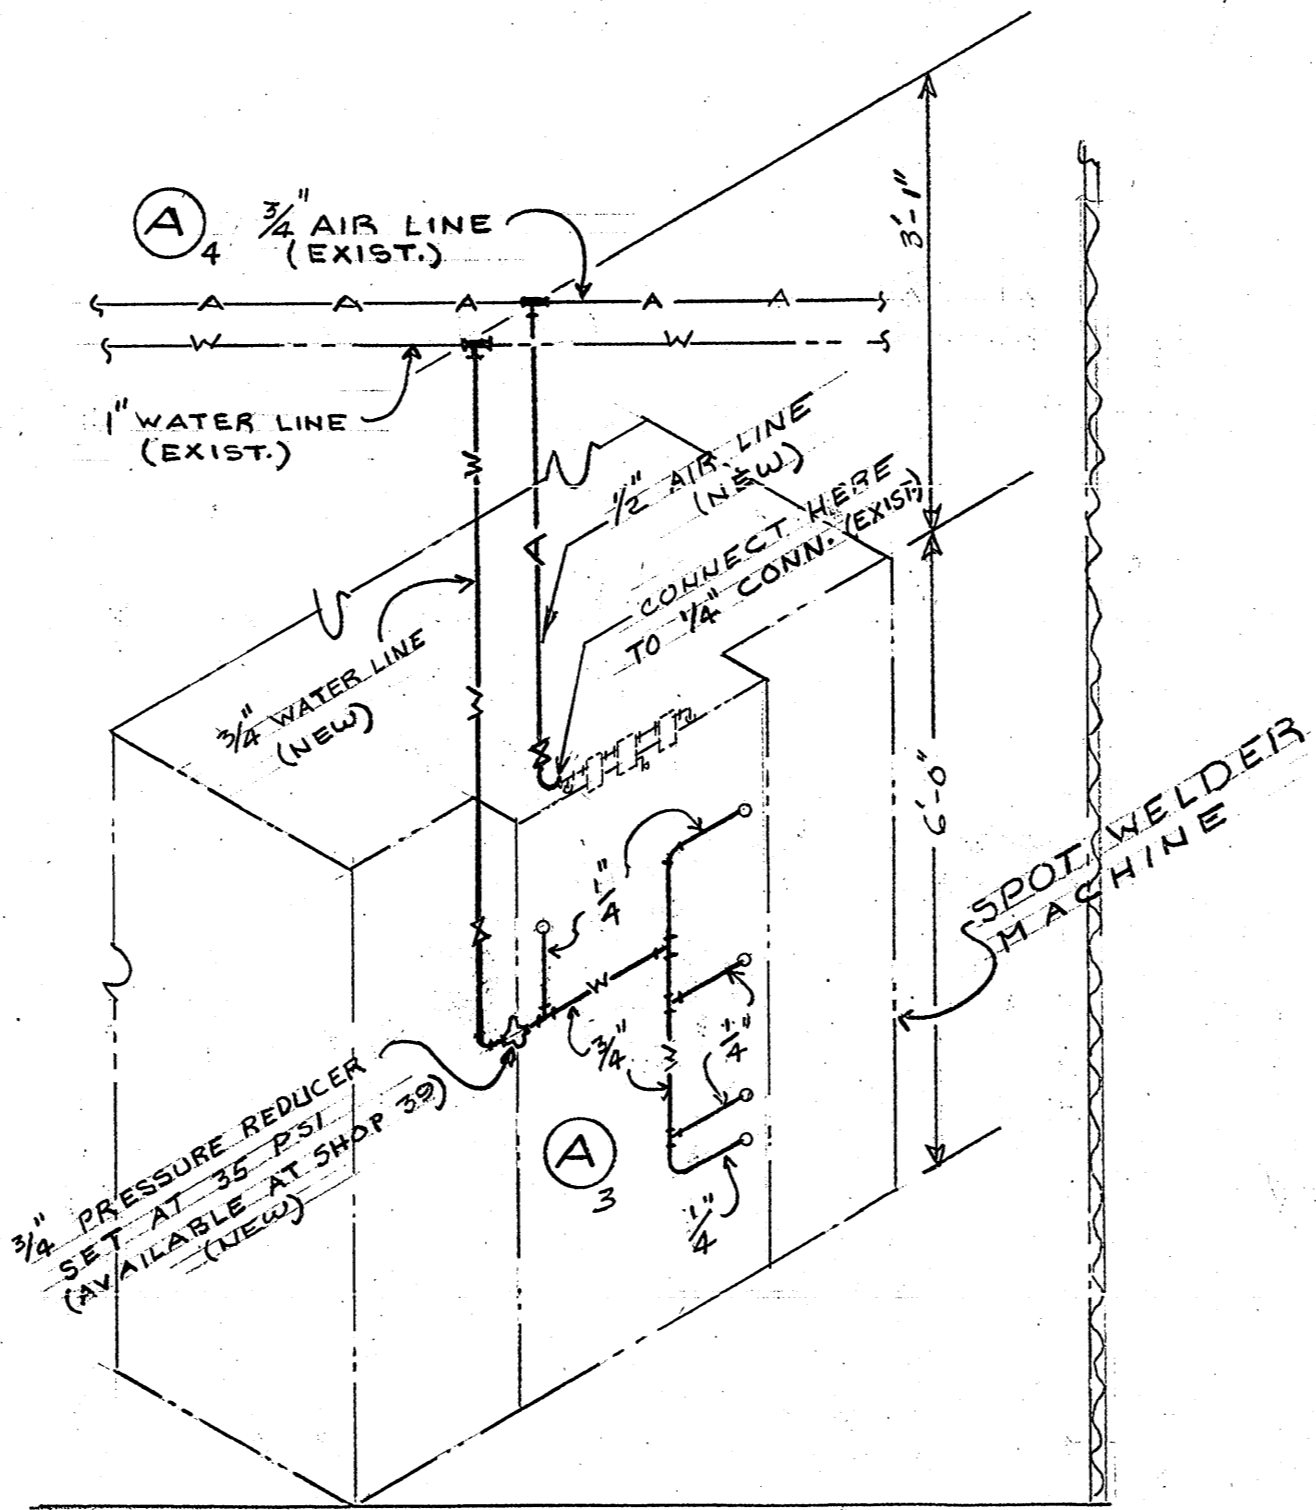 A 4
3/4" AIR LINE
(EXIST.)
3'-1"
A A A A A
W W
1" WATER LINE
(EXIST.)
W
1/2" AIR LINE
(NEW)
A
CONNECT HERE
TO 1/4" CONN. (EXIST)
3/4" WATER LINE
(NEW)
W
6'-0"
SPOT WELDER
MACHINE
1/4"
W
3/4"
1/4"
W
3/4" PRESSURE REDUCER
SET AT 35 PSI
(AVAILABLE AT SHOP 39)
(NEW)
A 3
1/4"